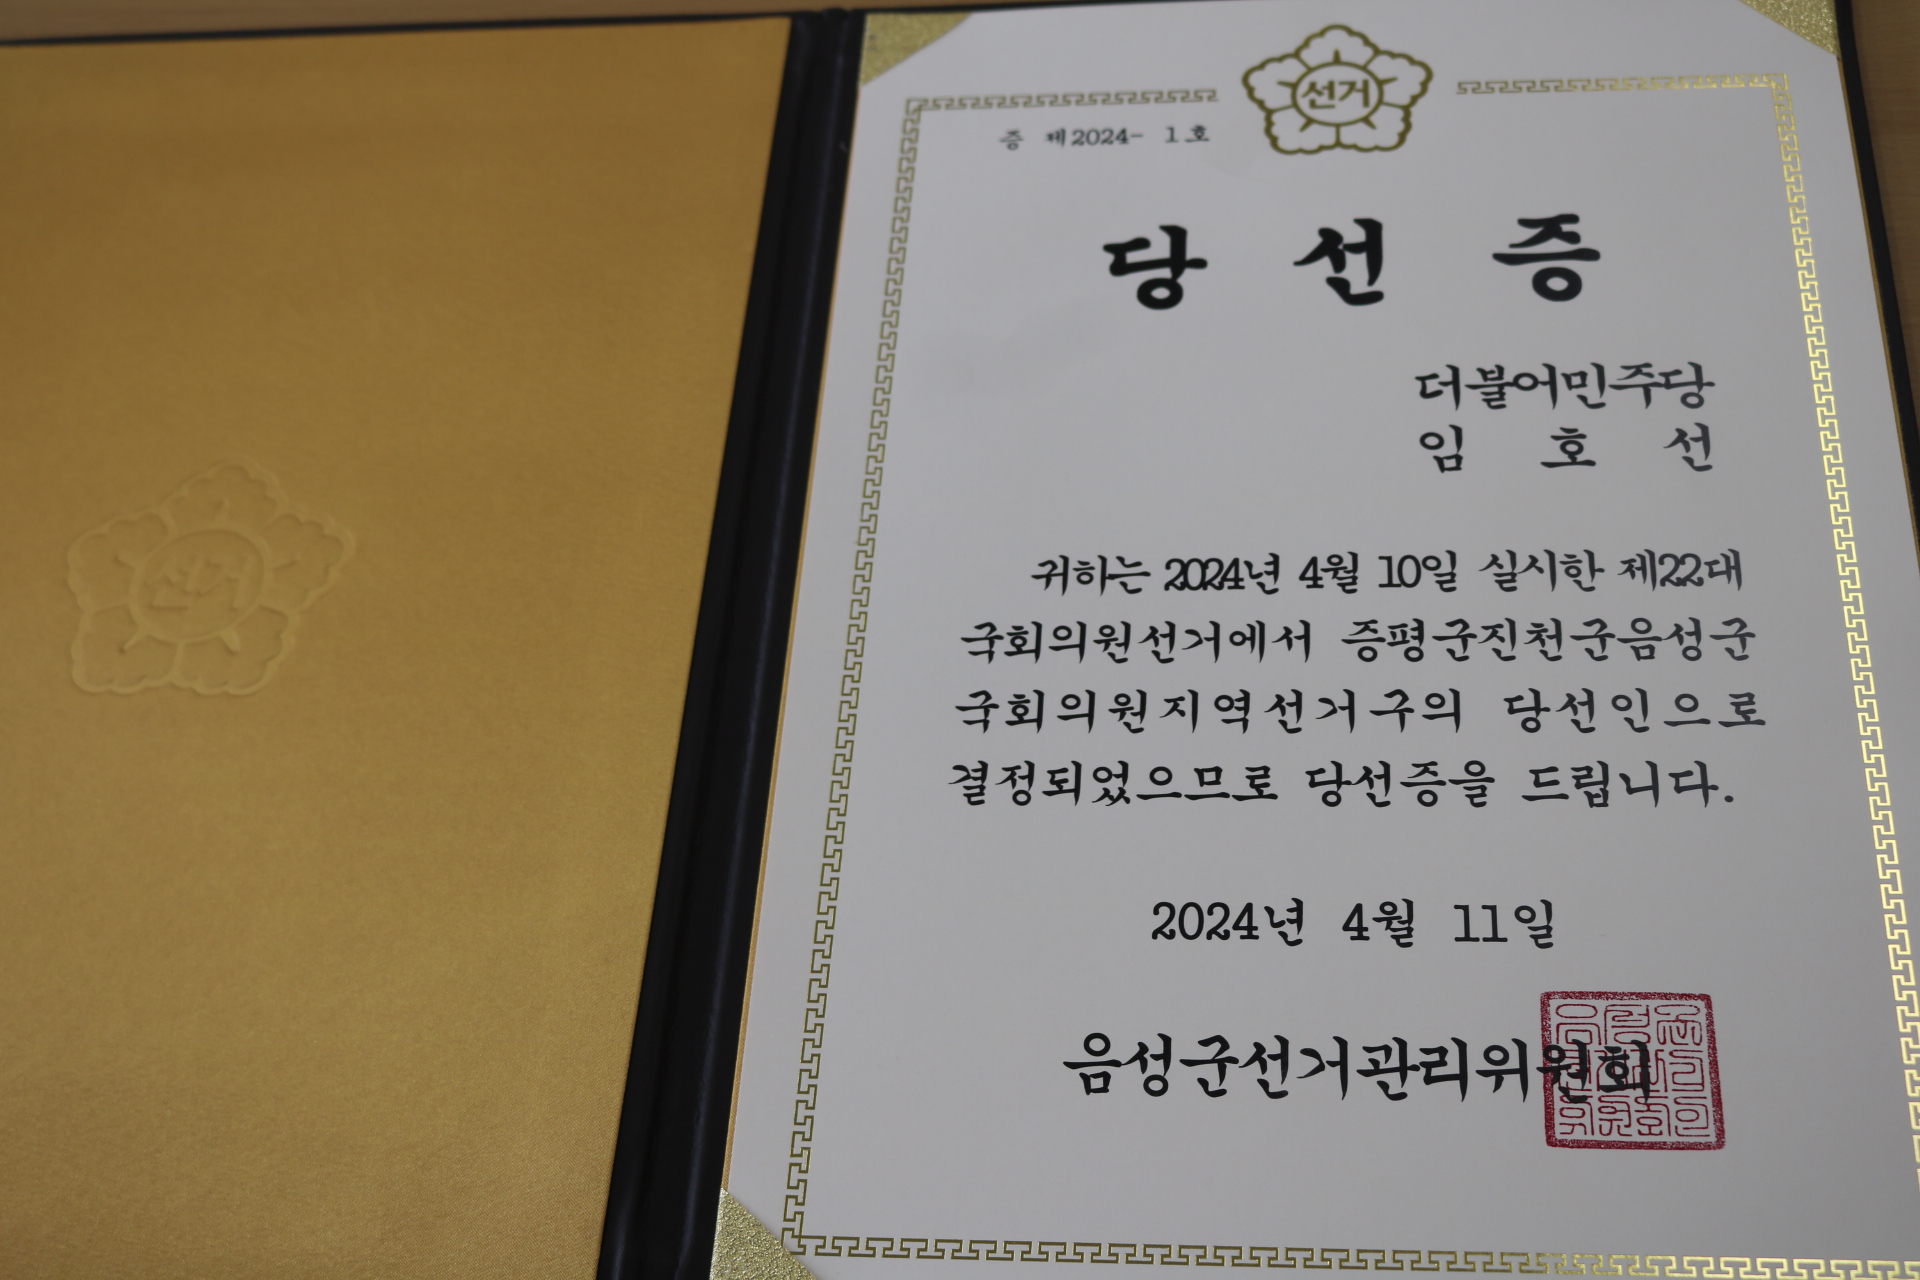 선거
증 제2024- 1호
당 선 증
더불어민주당
임 호 선
귀하는 2024년 4월 10일 실시한 제22대
국회의원선거에서 증평군진천군음성군
국회의원지역선거구의 당선인으로
결정되었으므로 당선증을 드립니다.
2024년 4월 11일
음성군선거관리위원회
선거